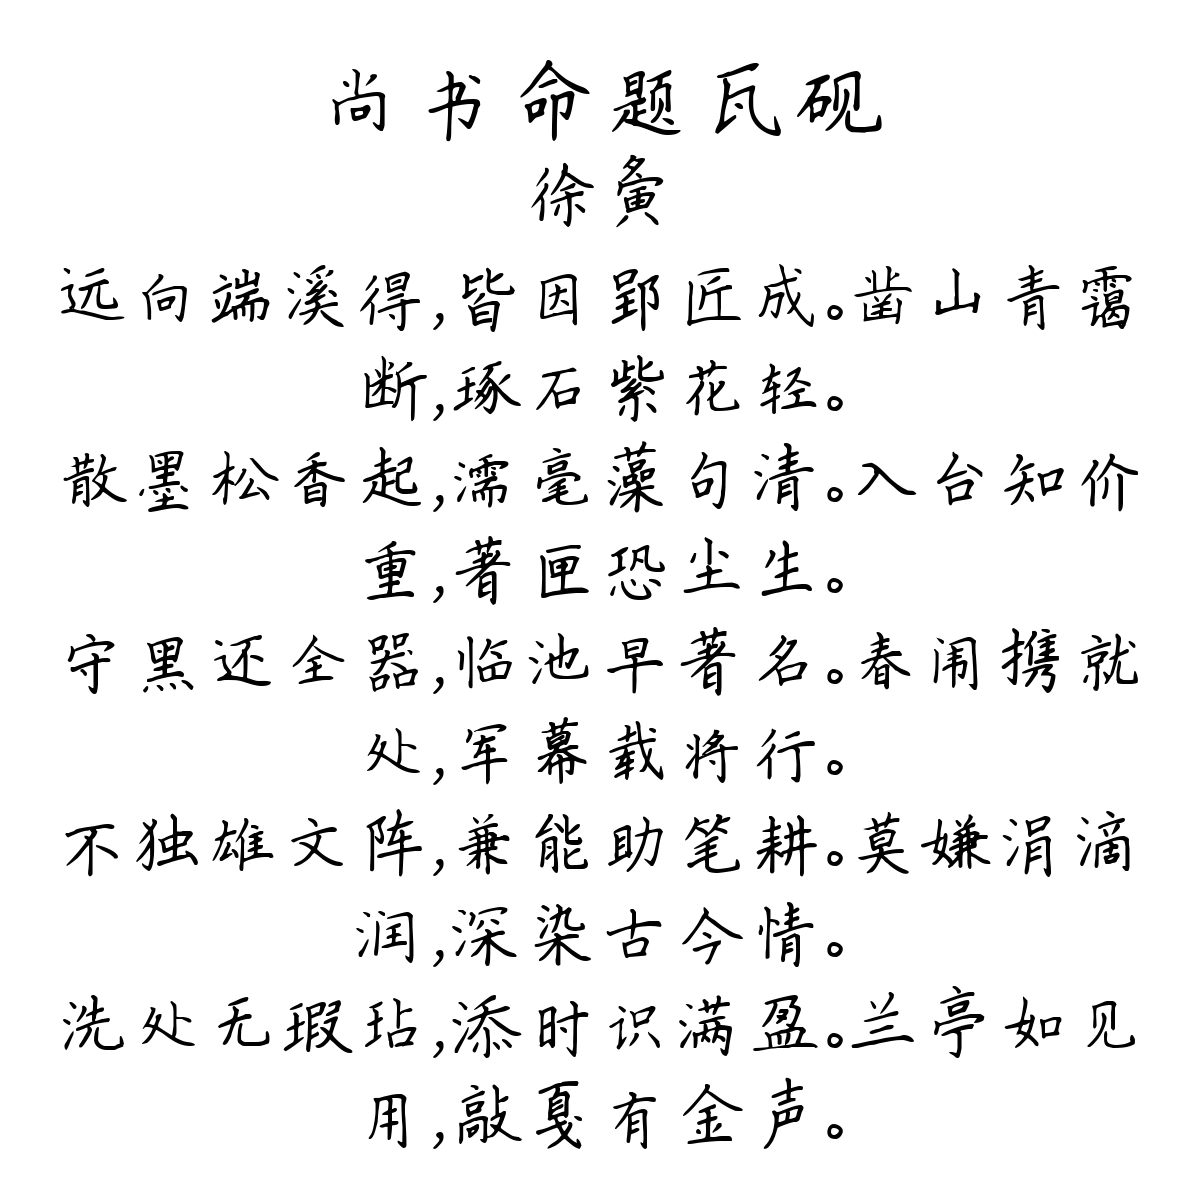 尚书命题瓦砚
徐夤
远向端溪得,皆因郢匠成。凿山青霭
断,琢石紫花轻。
散墨松香起,濡毫藻句清。入台知价
重,著匣恐尘生。
守黑还全器,临池早著名。春闱携就
处,军幕载将行。
不独雄文阵,兼能助笔耕。莫嫌涓滴
润,深染古今情。
洗处无瑕玷,添时识满盈。兰亭如见
用,敲戛有金声。